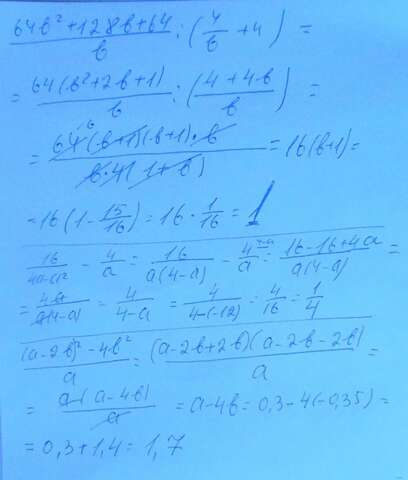 64b² + 128b + 64 / b : (4/b + 4) =
= 64(b² + 2b + 1) / b : (4 + 4b / b) =
= 64(b+1)(b+1)·b / b·4(1+b) = 16(b+1) =
= 16(1 - 15/16) = 16 · 1/16 = 1
16/4a-a² - 4/a = 16/a(4-a) - 4/a = 16-16+4a/a(4-a) =
= 4a/a(4-a) = 4/4-a = 4/4-(-12) = 4/16 = 1/4
(a-2b)² - 4b² / a = (a-2b+2b)(a-2b-2b) / a =
= a(a-4b) / a = a-4b = 0,3-4(-0,35) =
= 0,3+1,4 = 1,7